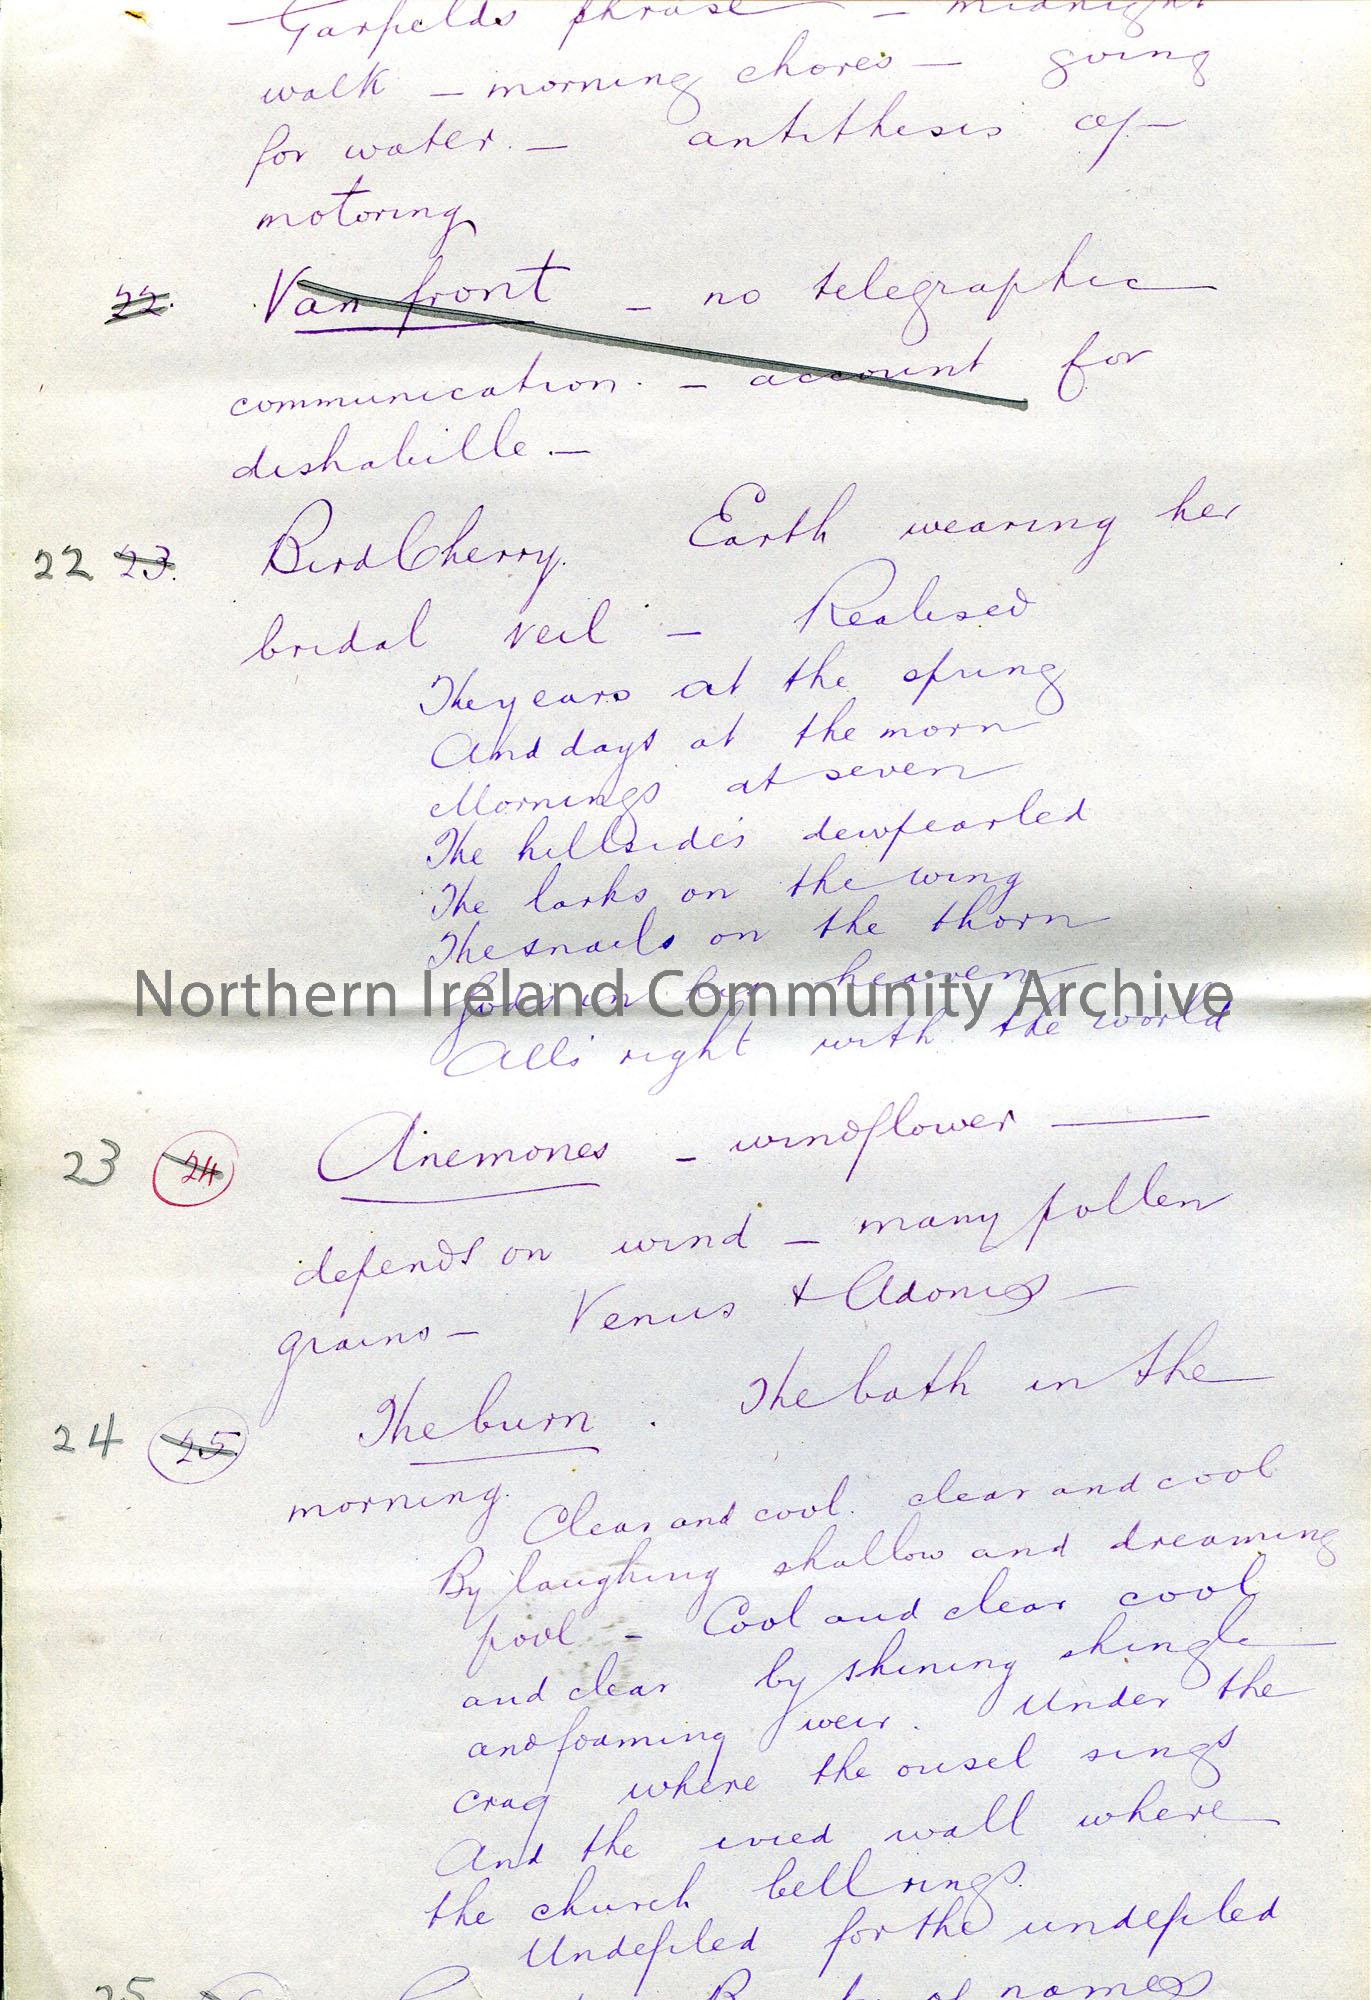 Garfields phrase — midnight
walk — morning chores — going
for water. — antithesis of
motoring
22. Van front — no telegraphic
communication. — account for
dishabille. —
22 23. Bird Cherry. Earth wearing her
bridal veil — Realised
The years at the spring
And days at the morn
Mornings at seven
The hillside's dewpearled
The larks on the wing
The snails on the thorn
Gods in his heaven
Northern Ireland Community Archive
All's right with the world
23 24 Anemones — windflower —
depends on wind — many pollen
grains — Venus & Adonis —
24 25 The burn. The bath in the
morning.
Clear and cool. clear and cool
By laughing shallow and dreaming
pool — Cool and clear cool
and clear by shining shingle
and foaming weir. Under the
crag where the ousel sings
And the ivied wall where
the church bell rings.
Undefiled for the undefiled
25 of names